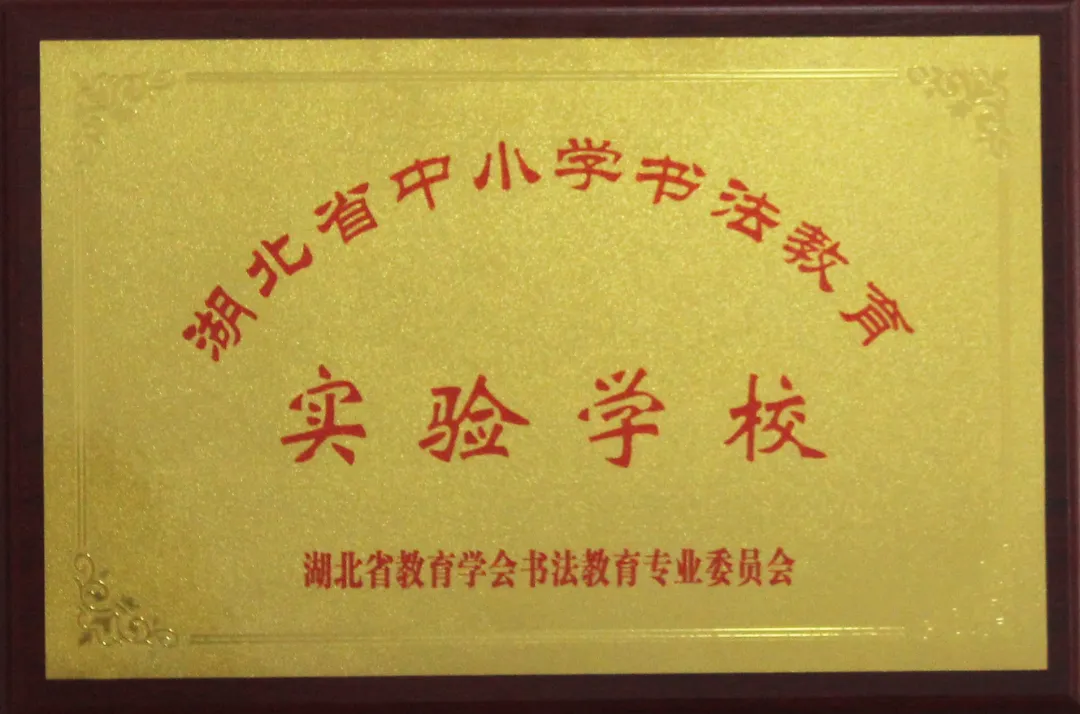 湖北省中小学书法教育
实验学校
湖北省教育学会书法教育专业委员会